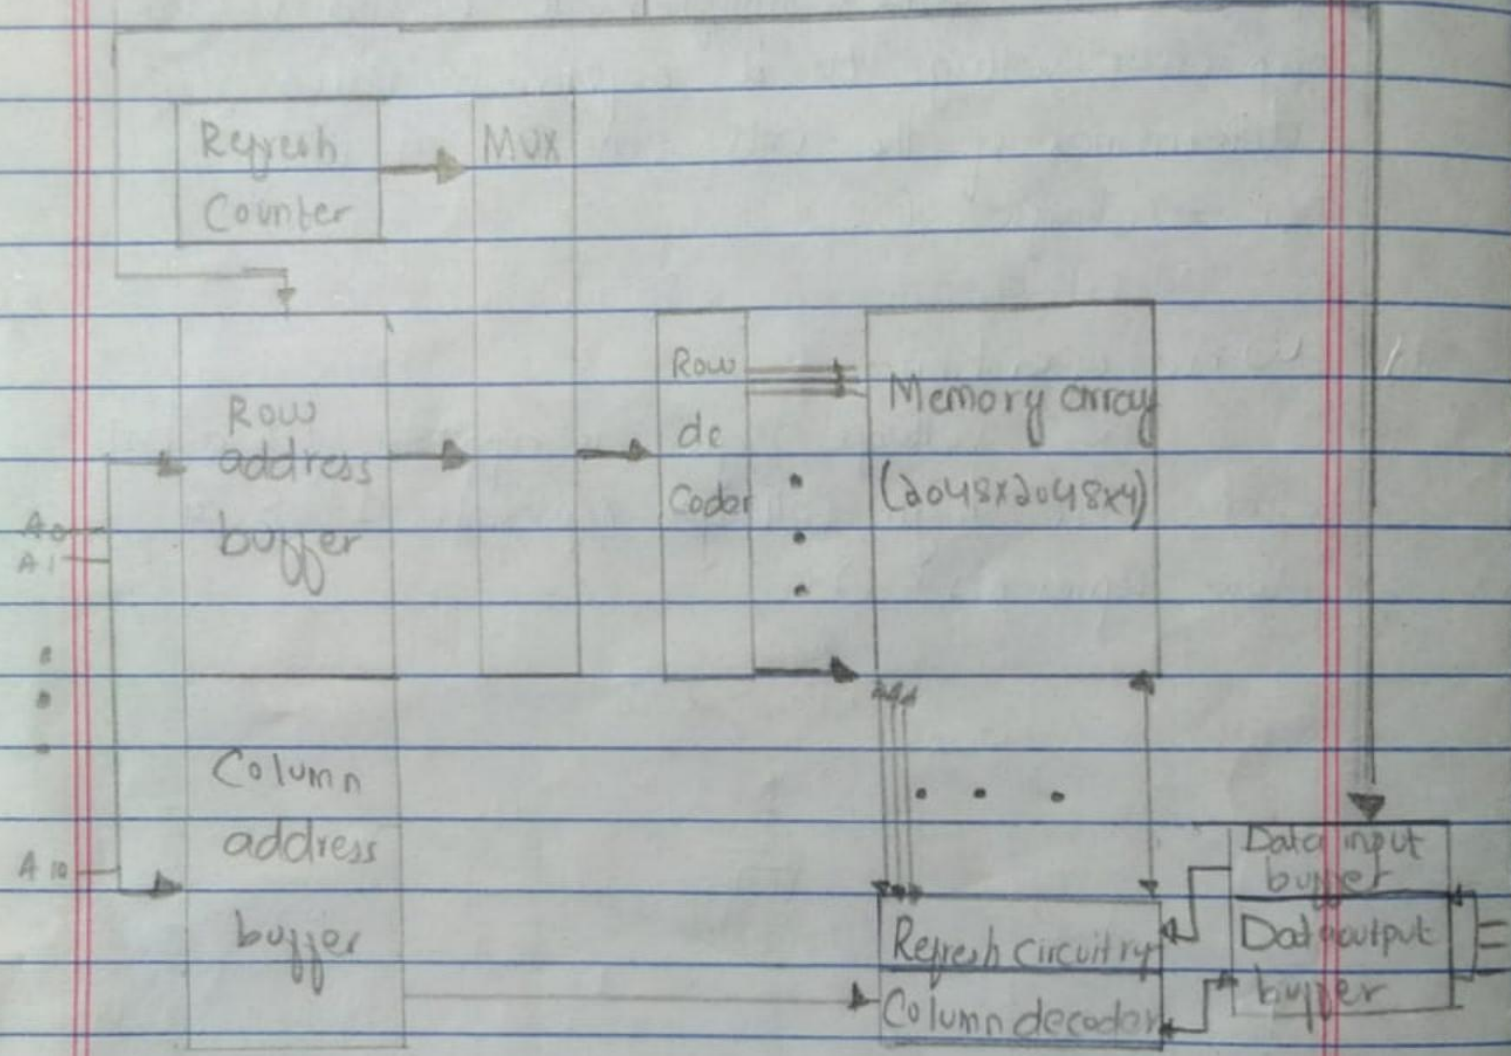 Refresh
Counter
MUX
Row
address
buffer
Row
de
Coder
Memory array
(2048x2048x4)
A0
A1
A10
Column
address
buffer
Refresh circuitry
Column decoder
Data input
buffer
Data output
buffer